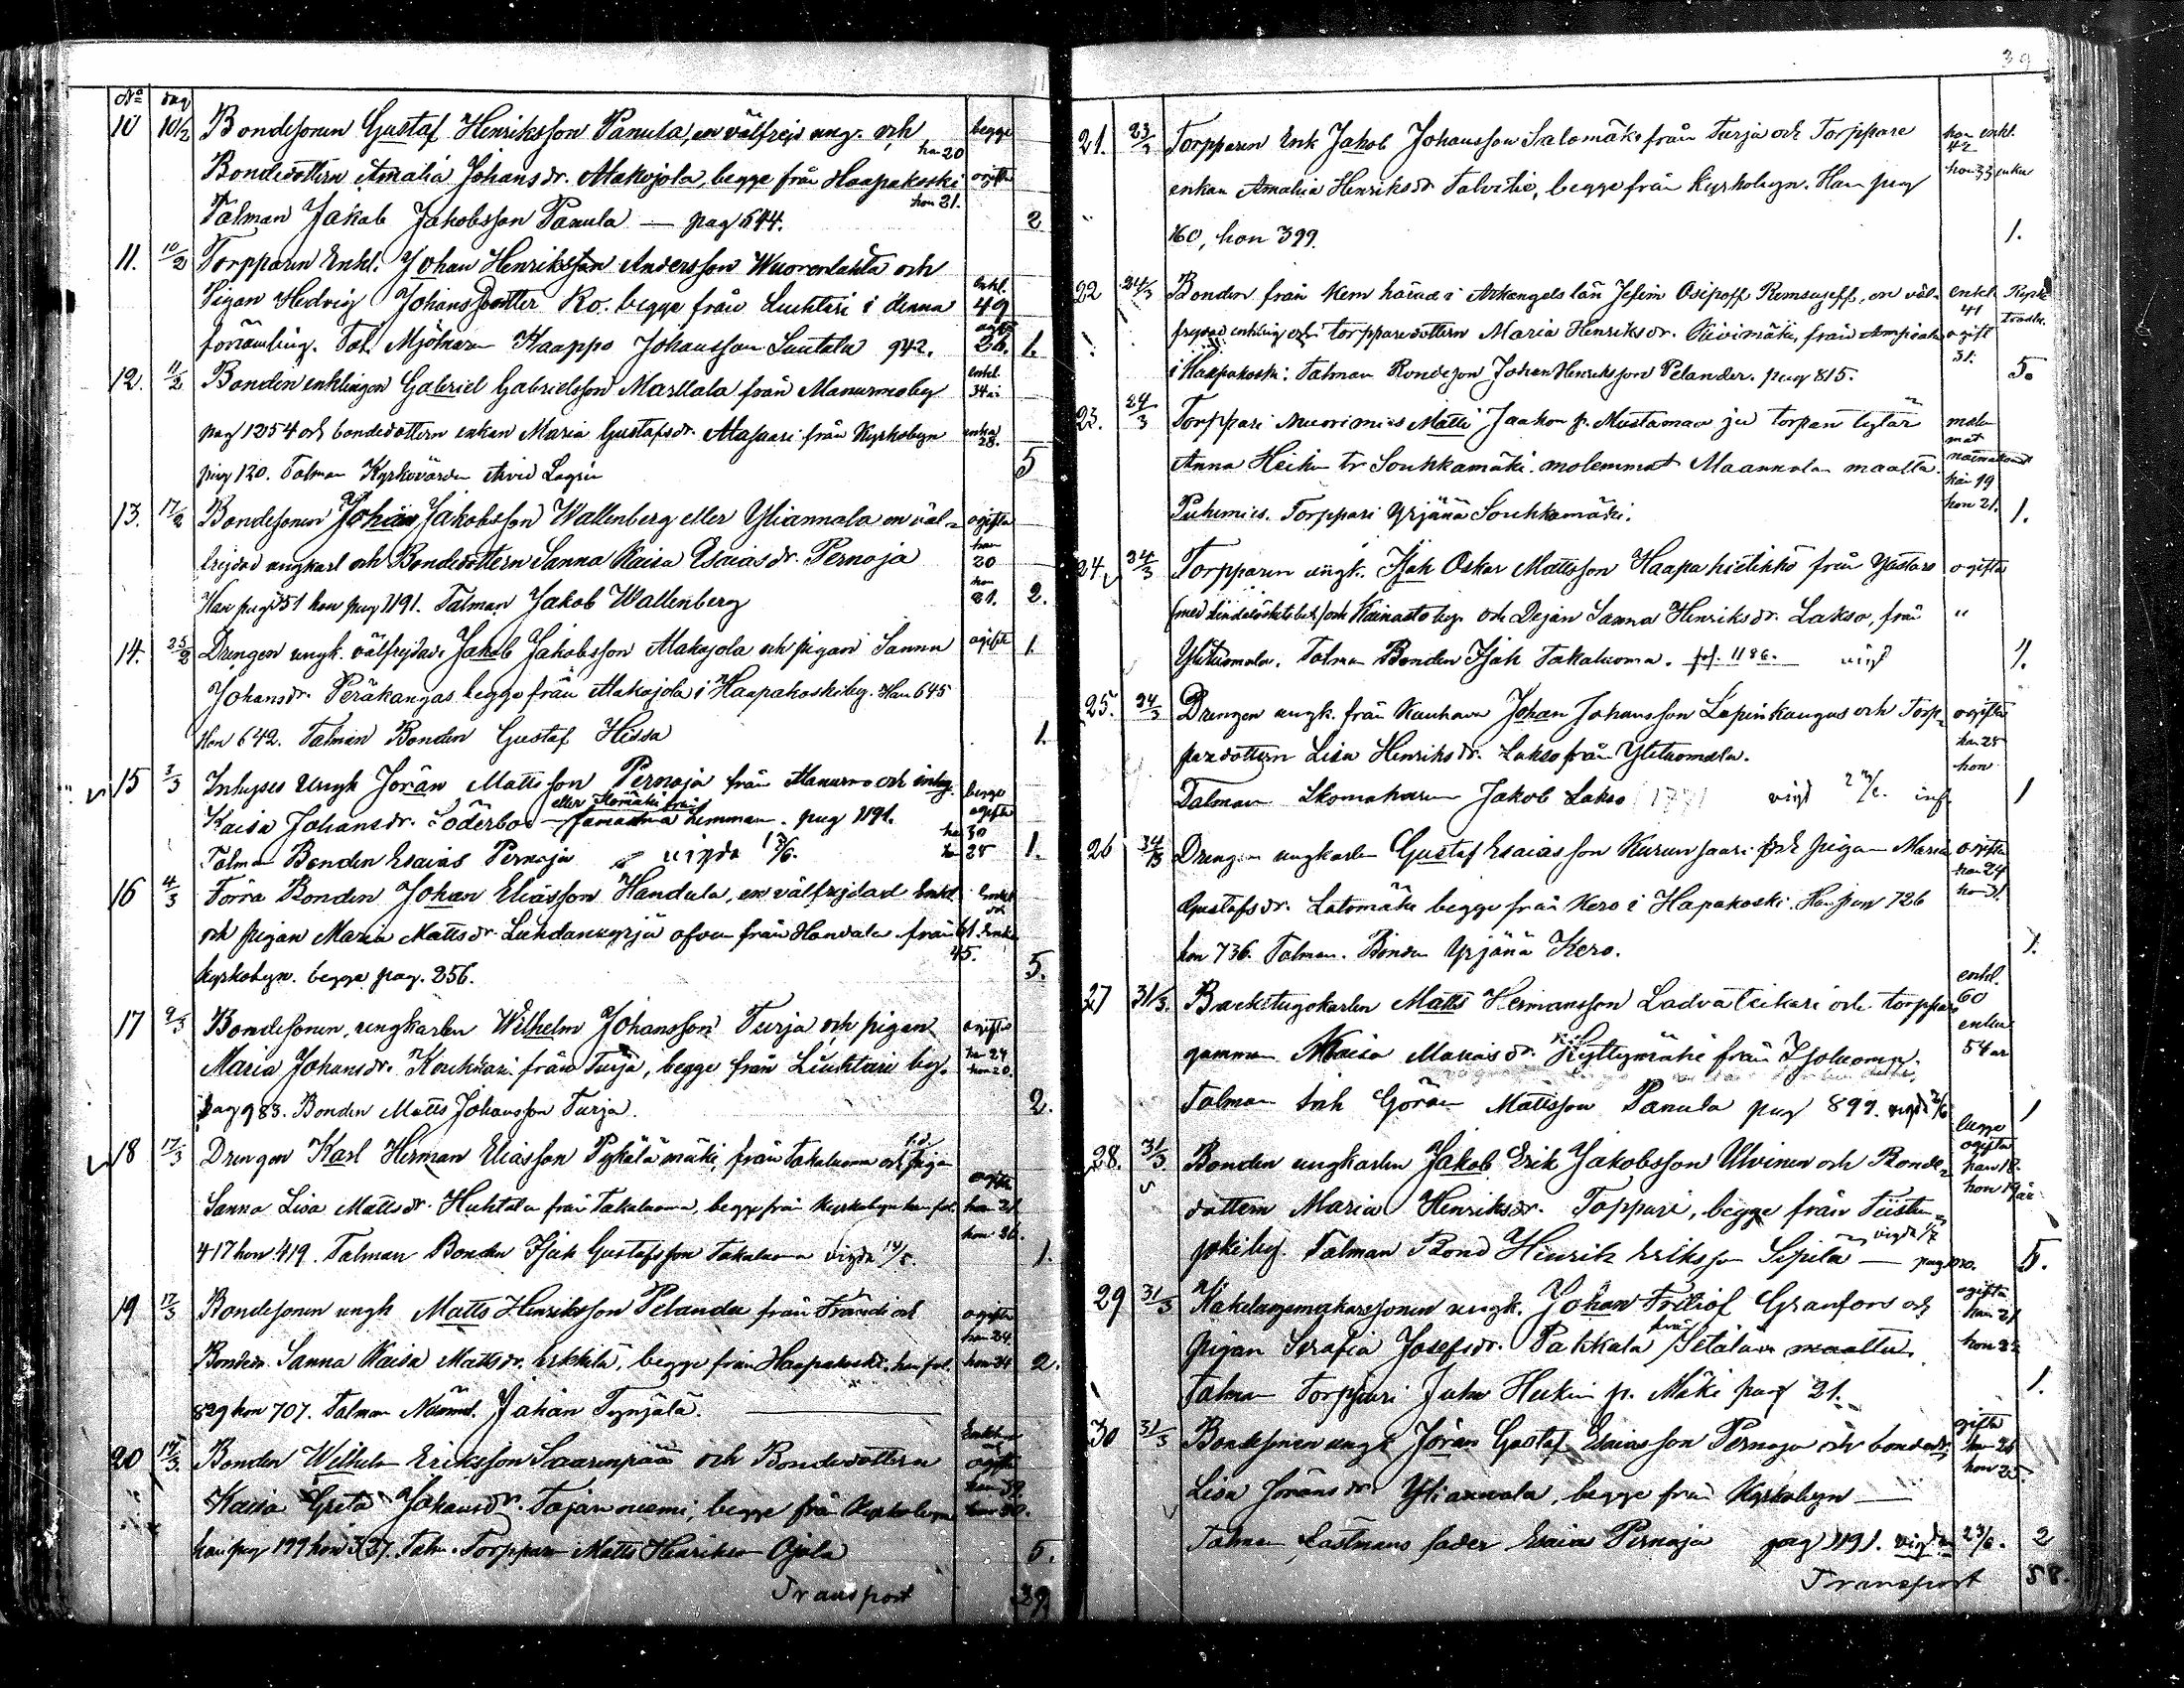 39
No dag
10 10/2 Bondesonen Gustaf Henriksson Panula, en välfrejd ung. och begge
han 20
Bondedottern Amalia Johansdr. Alakojola, begge från Haapakoski ogifta
hon 21.
Talman Jakob Jakobsson Panula — pag 644. 2
11. 10/2 Torpparen Enkl. Johan Henriksson Andersson Wuorenlahta och
Pigan Hedvig Johansdotter Ko. begge från Luchtari i denna enkl. 49
församling. Tal. Mjölnaren Kaappo Johansson Luutala 942. 26. 1.
12. 11/2 Bonden enklingen Gabriel Gabrielsson Marttala från Alanurmoby enkl. 34 år
pag 1254 och bondedottern enkan Maria Gustafsdr. Alasaari från Kyrkobyn enka 28.
pag 120. Talman Kyrkovärden Arvid 5
13. 17/2 Bondesonen Johan Jakobsson Wallenberg eller Yliannala en väl- ogifta
frejdad ungkarl och Bondedottern Sanna Kaisa Esaiasdr. Pernaja han 20
Han pag 51 hon pag 1191. Talman Jakob Wallenberg hon 21. 2.
14. 25/2 Drengen ungk. välfrejdade Jakob Jakobsson Alakojola och pigan Sanna ogifta 1
Johansdr. Peräkangas begge från Alakojola i Haapakoskiby. Han 645
Hon 642. Talman Bonden Gustaf Hissa 1.
15 3/3 Inhyses Ungk Jöran Mattsson Pernaja från Alanurmo och inhy. begge
eller Alomäki från
Kaisa Johansdr. Söderbo hemman. pag 1191. ogifta
han 30
Talman Bonden Esaias Pernaja vigda 13/6. hon 28 1.
16 4/3 Förra Bonden Johan Eliasson Handula, en välfrejdad Enkl. Enkl. och
och pigan Maria Mattsdr. Luhdankyrjä ofvan från Handala från 61. Enka
45.
Kyrkobyn. begge pag. 256. 5.
17 9/3 Bondesonen, ungkarlen Wilhelm Johansson Turja och pigan ogifta
Maria Johansdr. Kouhkari från Turja, begge från Luchtari by. han 24 hon 20.
Pag 983. Bonden Matts Johansson Turja. 2.
18 17/3 Drengen Karl Herman Eliasson Pykälämäki, från Takaluoma och piga
Sanna Lisa Mattsdr. Huhtala från Takaluoma, begge från Kyrkobyn han fol. ogifta han 21
hon 36.
417 hon 419. Talman Bonden Isak Gustafsson Takaluoma vigda 14/5. 1.
19 17/3 Bondesonen ungk Matts Henriksson Pelander från Frändi och ogifta
han 24.
Bondedr. Sanna Kaisa Mattsdr. Erkkilä, begge från Haapakoski. han fol. hon 24 2.
829 hon 707. Talman Nämnd. Johan Tynjälä.
20 17/3. Bonden Wilhelm Eriksson Saarenpää och Bondedottern Enkling ogift
Kaisa Greta Johansdr. Tojarinniemi, begge från Kyrkobyn han 39. hon 30.
han pag 199 hon Talm. Torppare Matts Henriksson Ojala 5.
Transport 39
21. 23/3 Torpparen Enk Jakob Johansson Salomäki från Turja och Torppare han enkl. 42
enkan Amalia Henriksdr. Talvitie, begge från Kyrkobyn. Han pag hon 33 enka
160, hon 399. 1.
22 24/3 Bonden från Kem härad i Arkangels län Jefim Osipoff Remsujeff, en väl- enkl. 41
frejdad enkling och torpparedottern Maria Henriksdr. Kivimäki, från ogift
31.
i Haapakoski: Talman Bondeson Johan Henriksson Pelander. pag 815. 5.
23. 24/3 Torppari nuorimies Matti Jaakon p. Mustamaa ja torpan tytär molem
mat
Anna Heikin tr Souhkamäki. molemmat Maannalan maalta. naimattomat
hän 19
Puhemies. Torppari Yrjänä Souhkamäki. hon 21. 1.
24. 24/3 Torpparen ungk. Isak Oskar Mattsson Haapahietikko från Ylistaro ogifta
(med hinderlöshetsbet.) och Kainasto by. och Dejan Sanna Henriksdr. Lakso, från "
Ylituomala. Talman Bonden Isak Takaluoma. fol. 1186. vigd 1.
25. 24/3 Drengen ungk. från Kauhava Johan Johansson Lapinkangas och Torp- ogifta
han 25
paredottern Lisa Henriksdr. Lakso från Ylituomala. hon
Talman Skomakaren Jakob Lakso 1771 vigd 23/6. 1
26 24/3 Drengen ungkarlen Gustaf Esaiasson Kurunsaari och pigan Maria ogifta
han 24
Gustafsdr. Latomäki begge från Kero i Hapakoski. Han pag 726 hon 21.
hon 736. Talman. Bonden Yrjänä Kero. 1.
27 31/3. Backstugokarlen Matts Hermansson Ladvateikari och torppare enkl. 60
gumman Kaisa Mariasdr. Kyttymäki från Isoluoma. enka 54 år
Talman Enk Göran Mattsson Panula pag 899. vigd 2/6 1
28. 31/3. Bonden ungkarlen Jakob Erik Jakobsson Ulvinen och Bonde- begge ogifta han 18.
dottern Maria Henriksdr. Toppari, begge från Tiisten- hon 19 år
jokiby. Talman Bond Henrik Eriksson Sipilä — vigda 1/7 5.
29 31/3 Kakelugnmakaresonen ungk. Johan Fritiof Granfors och ogifta han 21
från
pigan Serafia Josefsdr. Pakkala / Setälän maalta. hon 22
Talman Torppari Juha Heikin p. Mäki pag 21. 1.
30 31/3 Bondesonen ungk Jöran Gustaf Esaiasson Pernaja och bondedr. ogifta han 26
hon 25.
Lisa Jöransdr. Yliannala, begge från Kyrkobyn —
Talman Fästmans fader Esaias Pernaja pag 1191. vigda 23/6. 2
Transport 58.